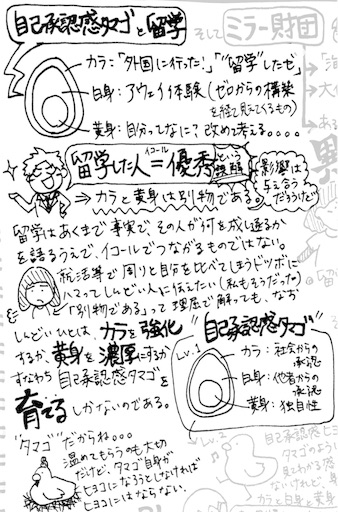 自己承認感タマゴと留学
そして ミラー財団
カラ:「外国に行った!」「"留学"したぜ」
白身:アウェイ体験(ゼロからの構築
を経て見えてくるもの)
黄身:自分ってなに?改めて考える。。。。
留学した人 = 優秀 という
イコール
誤解
影響は
与えうる
だろうけど
⇒ カラと黄身は別物である。
留学はあくまで事実で、その人が何を成し遂るか
を語るうえで、イコールでつながるものではない。
就活等で周りと自分を比べてしまうドツボに
ハマってしんどい人に伝えたい(私もそうだった)
「別物である」って理屈で解っても、なお
しんどいひとは、カラを強化
するか、黄身を濃厚にするか
すなわち自己承認感タマゴを
育てる しかないのである。
"自己承認感タマゴ"
Lv.1
カラ:社会からの
承認
白身:他者からの
承認
黄身:独自性
"タマゴ"だからね。。。
温めてもらうのも大切
だけど、タマゴ自身が
ヒヨコになろうとしなければ
ヒヨコにはならない。
Lv.2
自己承認感ヒヨ
タマゴのように
見とわかる感
ないけれど、
カラと白身と